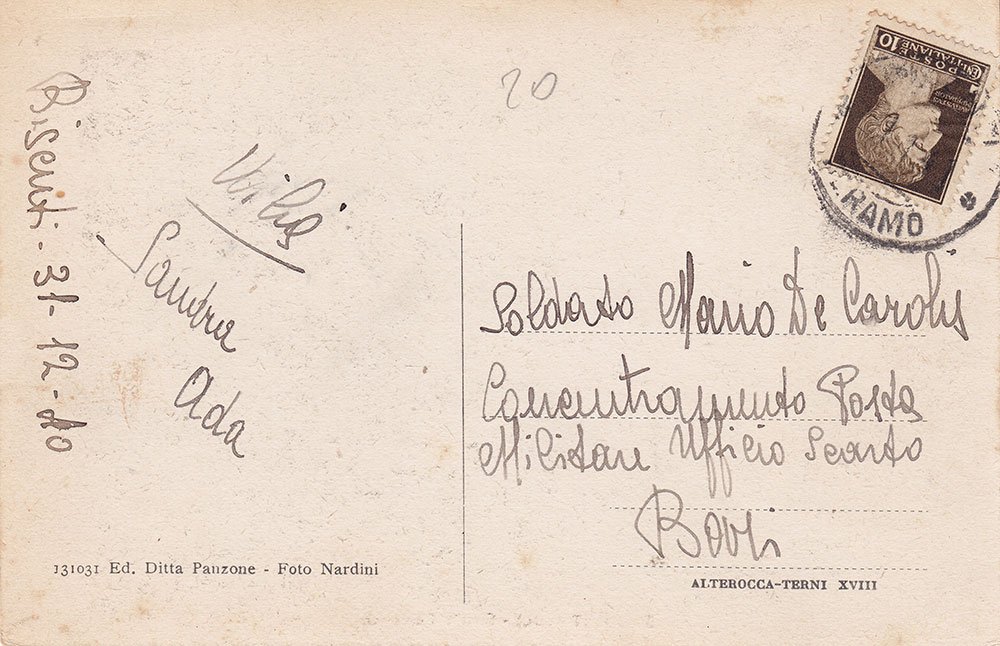 20
Bisenti - 31 - 12 - 40
Sandra
Ada
131031 Ed. Ditta Panzone - Foto Nardini
CENT. 10
POSTE
ITALIANE
RAMO
Soldato Mario De Carolis
Concentramento Posta
Militare Ufficio Scarto
Bari
ALTEROCCA-TERNI XVIII